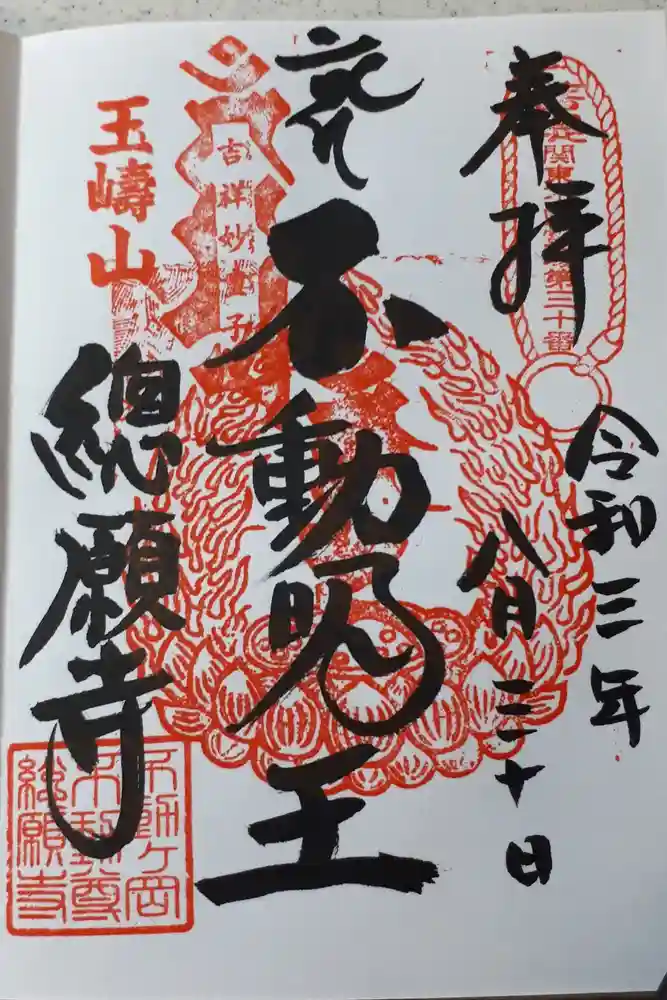 奉拝
関東
第三十番
令和三年
八月三十日
不動明王
吉祥妙
玉嶹山
總願寺
不動ヶ岡
不動尊
總願寺